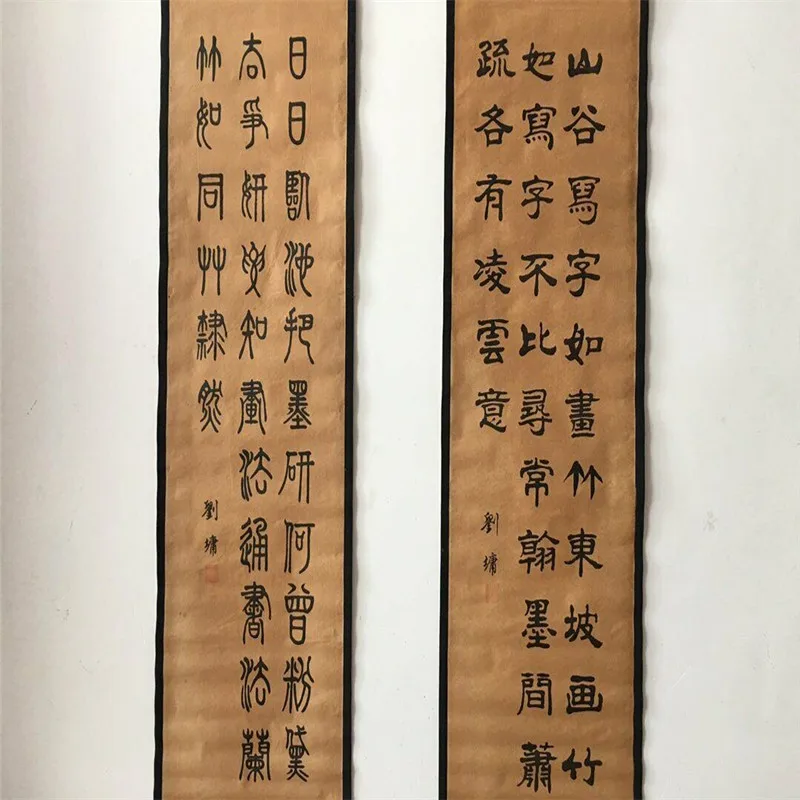 山谷寫字如畫竹東坡画竹
如寫字不比尋常翰墨間蕭
疏各有凌雲意
劉墉
日日臨池把墨研何曾粉黛
去爭妍要知畫法通書法蘭
竹如同艸隸然
劉墉